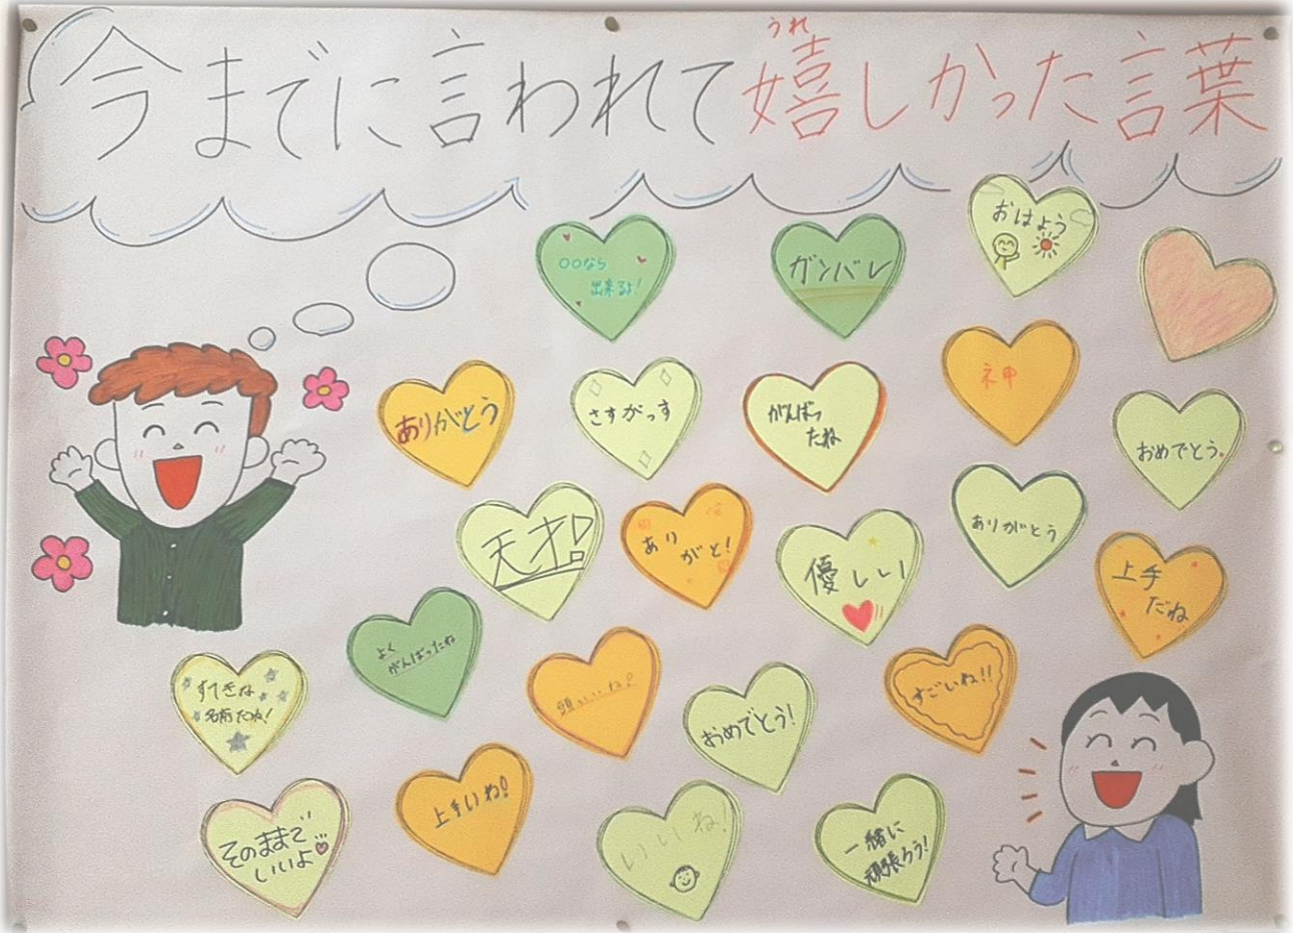 今までに言われて嬉しかった言葉
うれ
〇〇なら
出来るよ!
ガンバレ
おはよう
ありがとう
さすがっす
がんばっ
たね
神
おめでとう
天才!
あり
がと!
優しい
ありがとう
上手
だね
よく
がんばったね
頭いいね!
おめでとう!
すごいね!!
すてきな
名前だね!
そのままで
いいよ
上手いね!
いいね!
一緒に
頑張ろう!